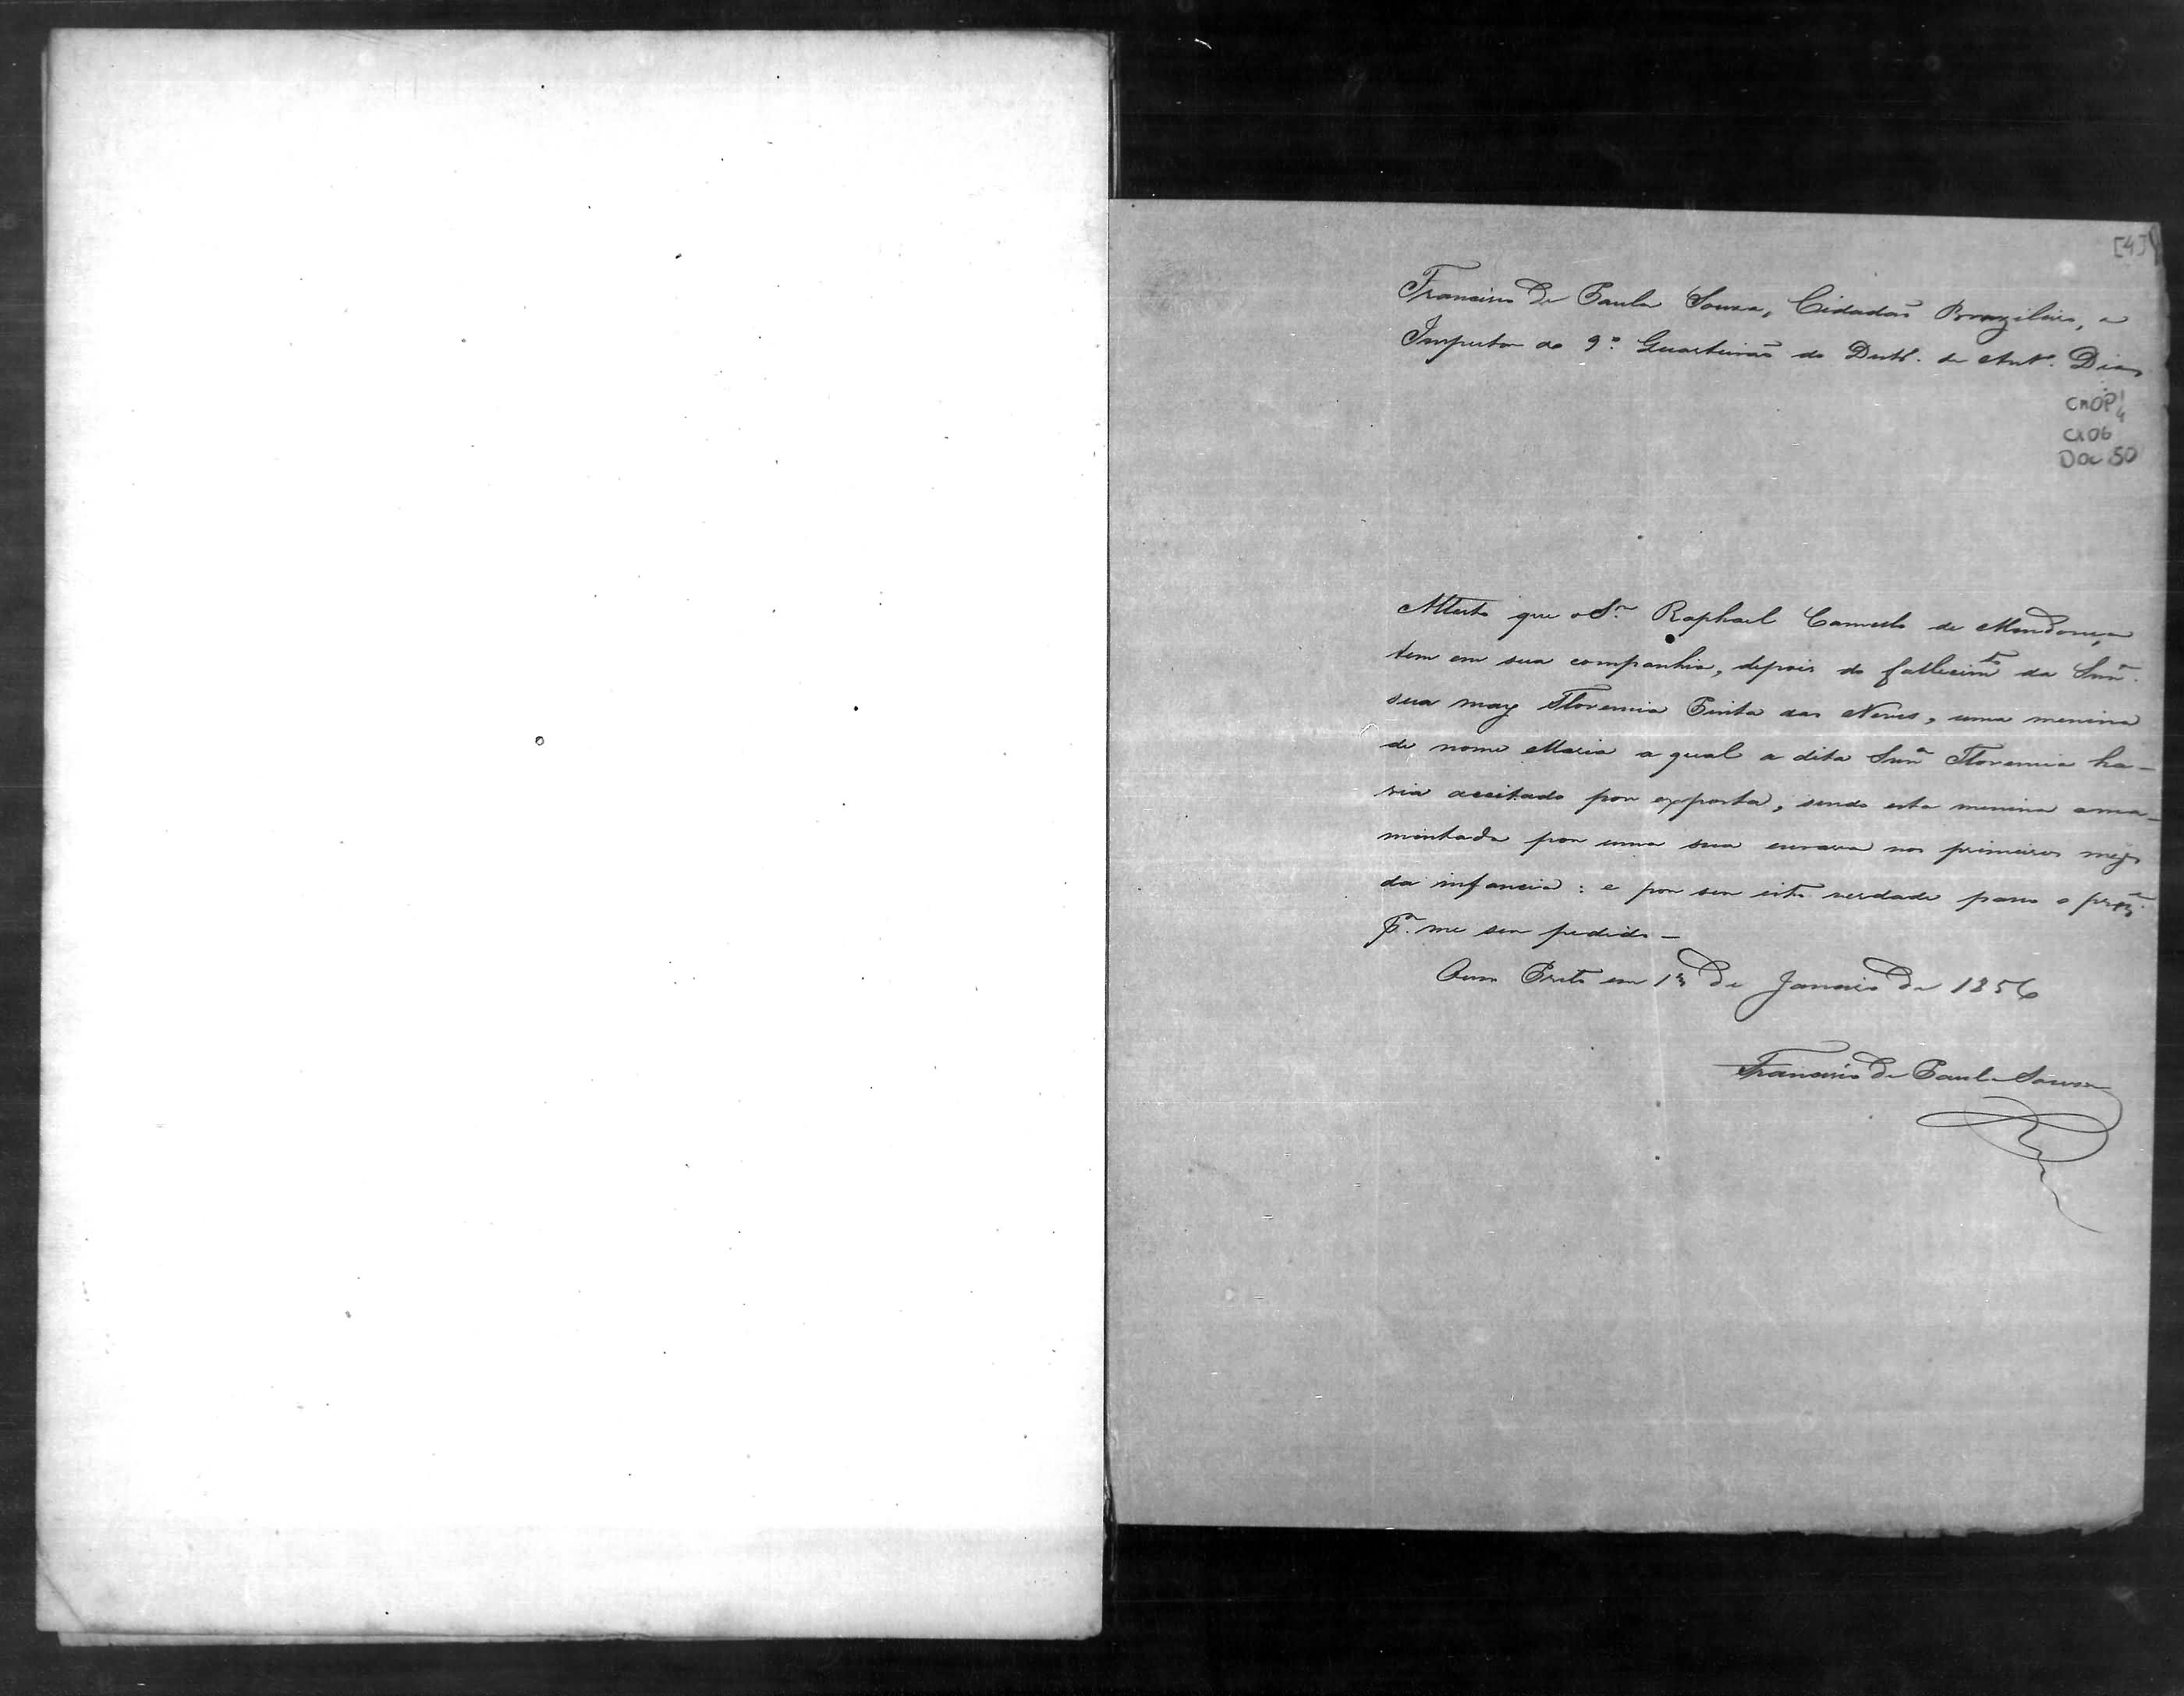 [4]
Francisco de Paula Souza, Cidadaõ Brazileiro, e
Inspector do 9º Quarteiraõ do Destº. de Antº. Dias
CMOP
Cx 06
Doc 50
Attesto que o Sr. Raphael Carneiro de Mendonça
tem em sua companhia, depois do fallecimto da Snrª.
sua may Florencia Pinta das Neves, uma menina
de nome Maria a qual a dita Snrª Florencia ha-
via aceitado por exposta, sendo esta menina ama-
mentada por uma sua escrava nos primeiros mezes
da infancia: e por ser isto verdade passo o prezte.
pr. me ser pedido -
Ouro Preto em 13 de Janeiro de 1856
Francisco de Paula Souza